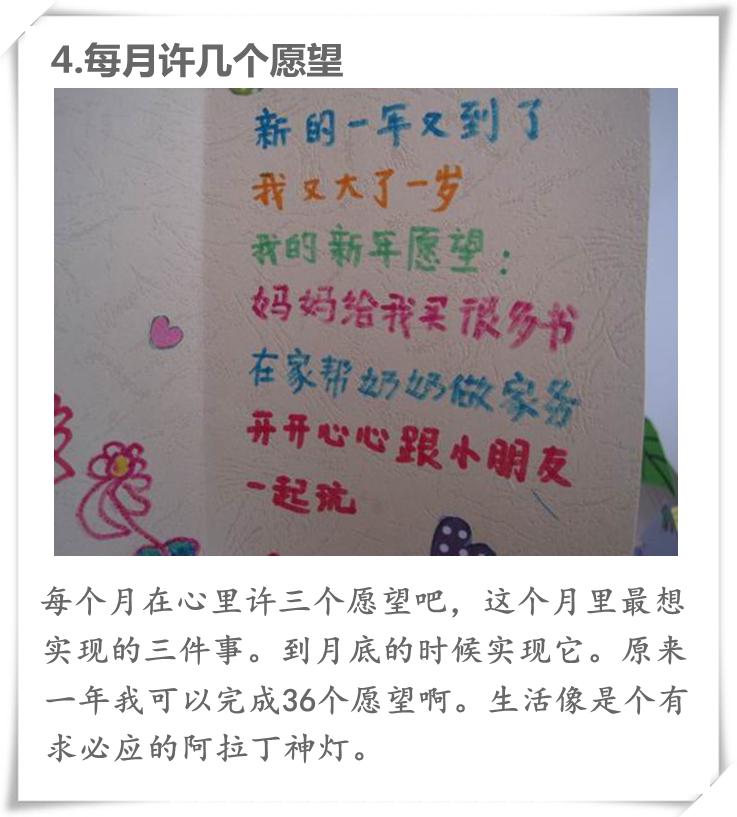 4.每月许几个愿望
新的一年又到了
我又大了一岁
我的新年愿望：
妈妈给我买很多书
在家帮奶奶做家务
开开心心跟小朋友
一起玩
每个月在心里许三个愿望吧，这个月里最想
实现的三件事。到月底的时候实现它。原来
一年我可以完成36个愿望啊。生活像是个有
求必应的阿拉丁神灯。